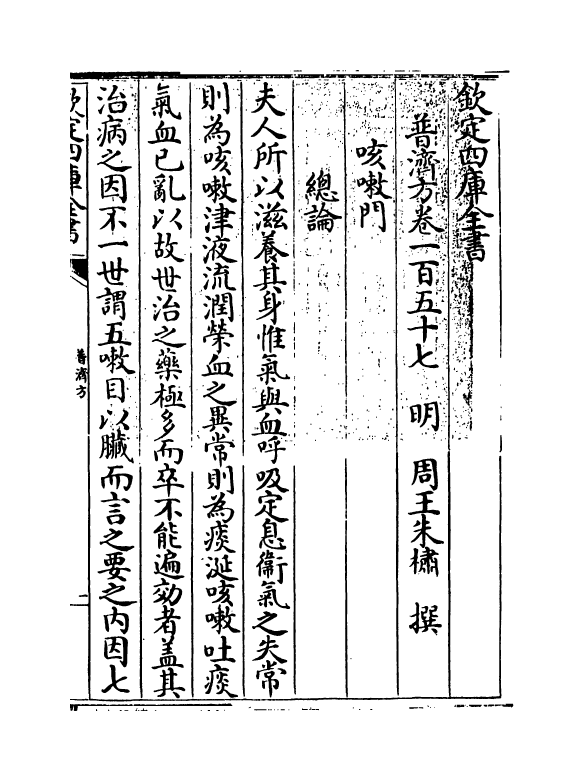 欽定四庫全書
普濟方卷一百五十七　明　周王朱橚　撰
咳嗽門
總論
夫人所以滋養其身惟氣與血呼吸定息衞氣之失常
則為咳嗽津液流潤榮血之異常則為痰涎咳嗽吐痰
氣血已亂以故世治之藥極多而卒不能遍効者盖其
治病之因不一世謂五嗽目以臟而言之要之内因七
欽定四庫全書
普濟方